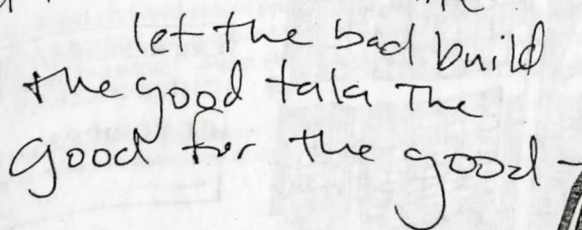 let the bad build
the good take the
Good for the good-